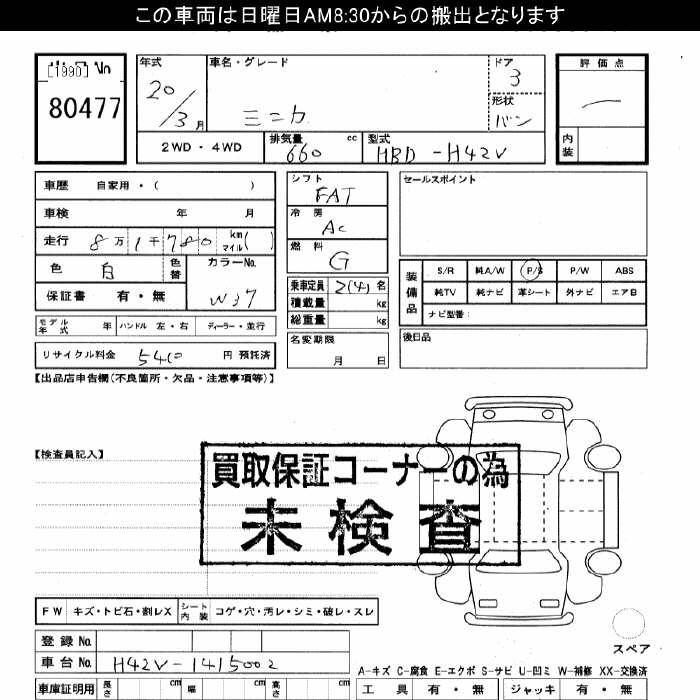 この車両は日曜日AM8:30からの搬出となります
[1990]
80477
年式 車名・グレード ドア 評価点
20/3月 ミニカ 3
形状 バン
2WD・4WD 排気量 660 cc 型式 HBD-H42V 内装
車歴 自家用・( )
シフト FAT
セールスポイント
車検 年 月
冷房 AC
走行 8万1千780 km マイル( )
燃料 G
色 白 色替 カラーNo. W37
保証書 有・無
乗車定員 2(4)名
積載量 kg
総重量 kg
装備品 S/R 純A/W P/S P/W ABS
純TV 純ナビ 革シート 外ナビ エアB
ナビ型番:
モデル年式 年 ハンドル 左・右 ディーラー・並行
名変期限 月 日
後日品
リサイクル料金 5410 円 預託済
【出品店申告欄(不良箇所・欠品・注意事項等)】
【検査員記入】
買取保証コーナーの為
未検査
FW キズ・トビ石・割レX シート内装 コゲ・穴・汚レ・シミ・破レ・スレ
スペア
登録No.
車台No. H42V-1415002
A-キズ C-腐食 E-エクボ S-サビ U-凹ミ W-補修 XX-交換済
車庫証明用 長さ cm 幅 cm 高さ cm 工具 有・無 ジャッキ 有・無